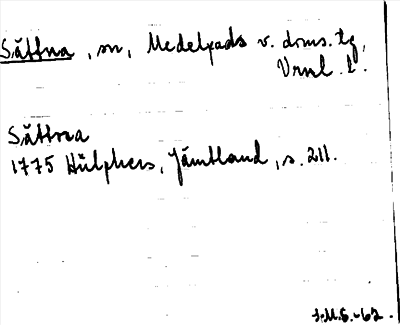 Sättna, sn, Medelpads v. doms. tg,
Vrnl. l.
Sättna
1775 Hülphers, Jämtland, s. 211.
J.M.S.-62.